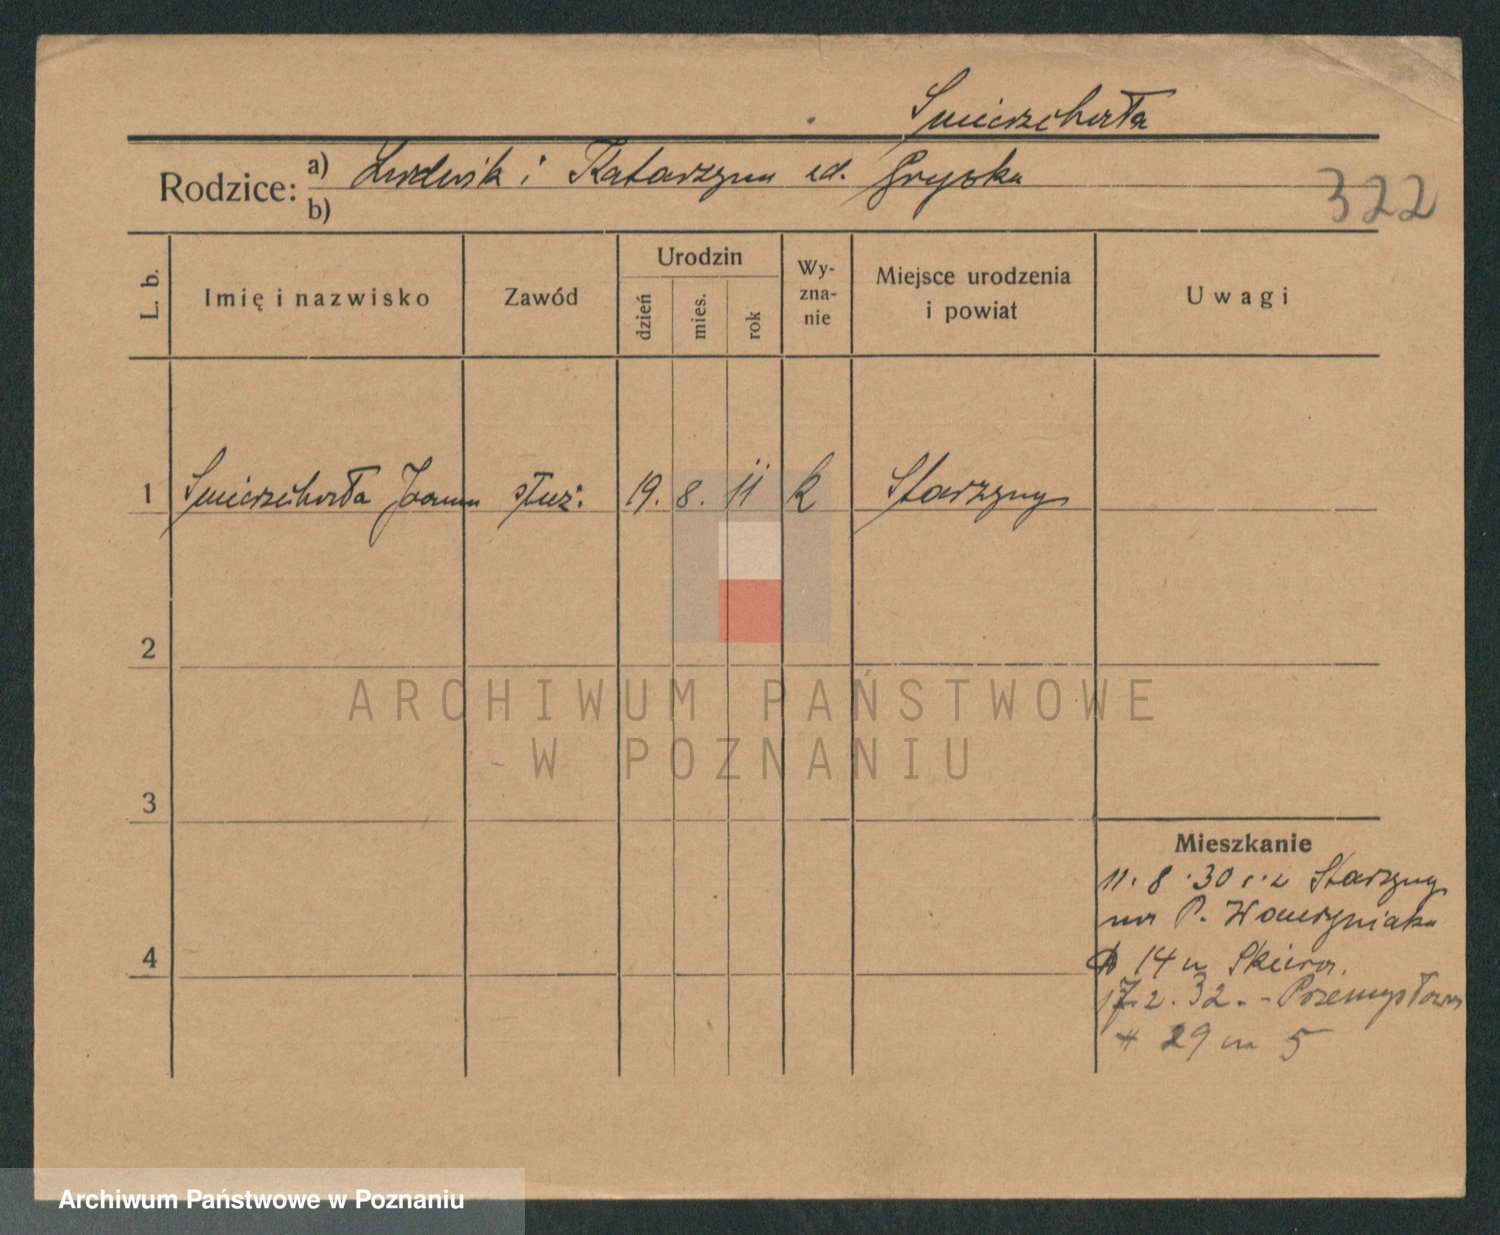 Śmierzchała
Rodzice: a) Ludwik i Katarzyna zd. Gryska
b)
322
L. b.
Imię i nazwisko
Zawód
Urodzin
dzień
mies.
rok
Wy-
zna-
nie
Miejsce urodzenia
i powiat
Uwagi
1 Śmierzchała Joanna służ. 19. 8. 11 k Starzyny
2
3
4
Mieszkanie
11. 8. 30 r. z Starzyny
na P. Wawrzyniaka
14 u
17. 2. 32. - Przemysłowa
29 m 5
ARCHIWUM PAŃSTWOWE
W POZNANIU
Archiwum Państwowe w Poznaniu